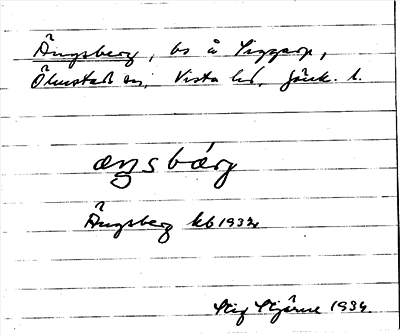 Ängsberg, bs å Siggarp,
Ölmstad sn, Vista hd, Jönk. l.
æŋsbárj
Ängsberg kb 1932
Stig Stjärne 1934.